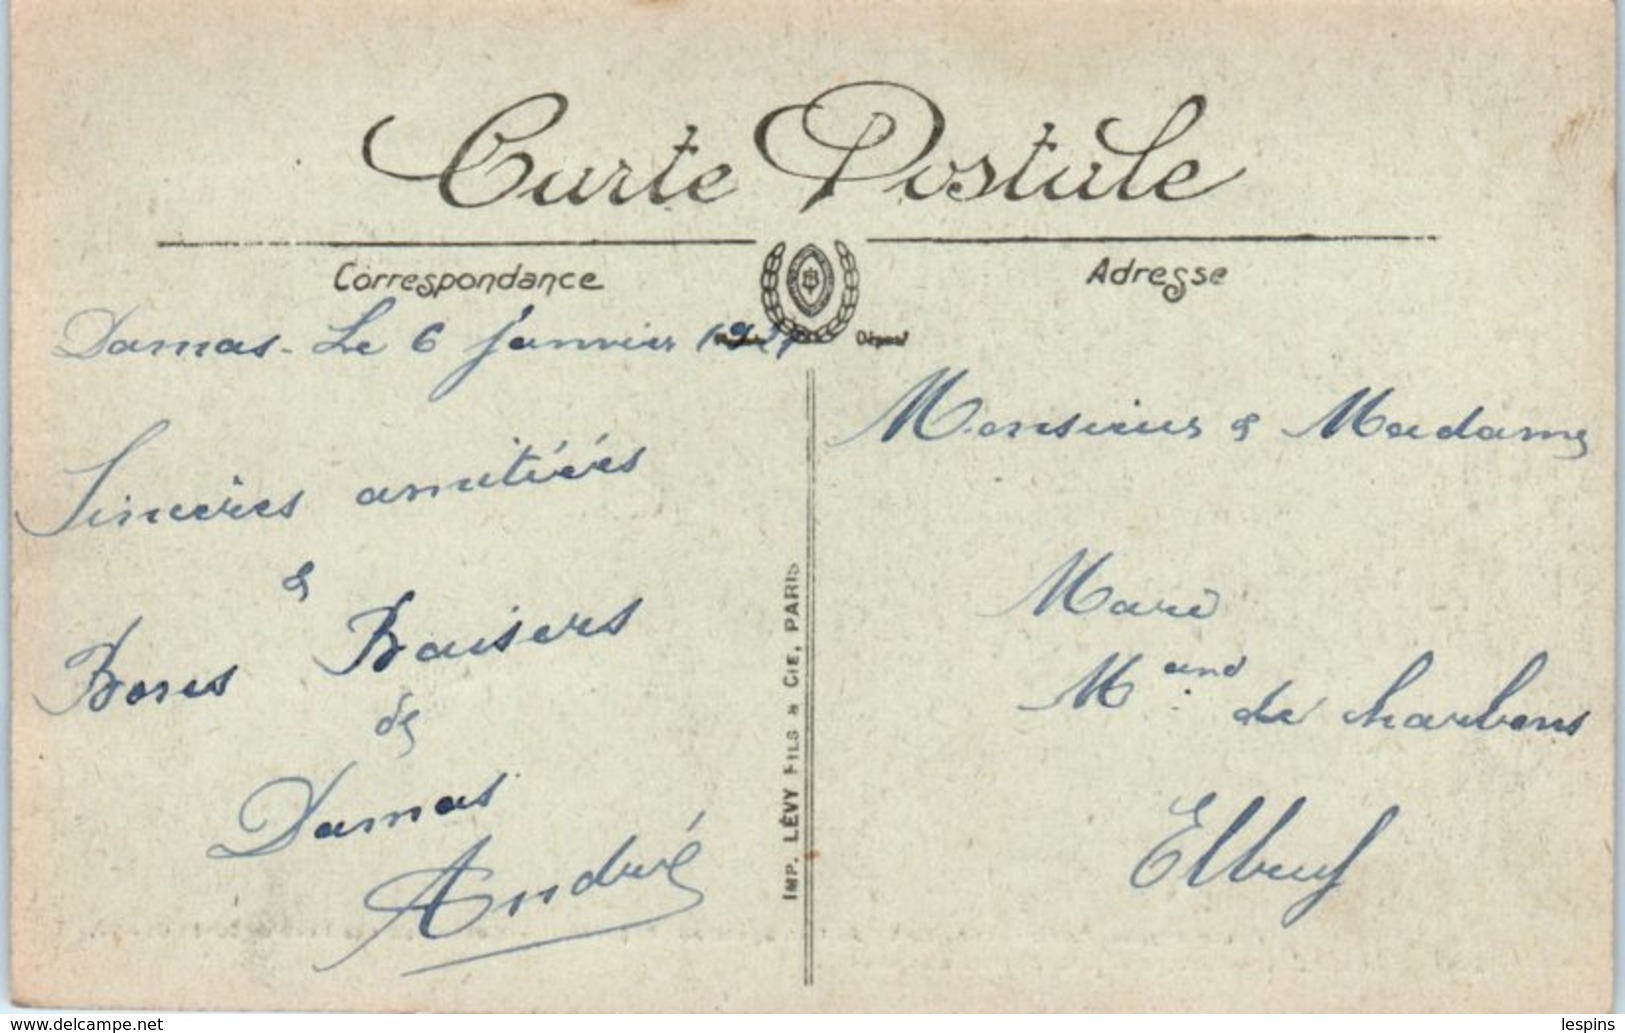 Carte Postale
Correspondance
Adresse
Damas - Le 6 Janvier
Déposé
Sincères amitiées
&
Bons Baisers
de
Damas
André
IMP. LÉVY FILS & CIE, PARIS
Monsieur & Madame
Mare
Mand de charbons
Elbeuf
www.delcampe.net
lespins